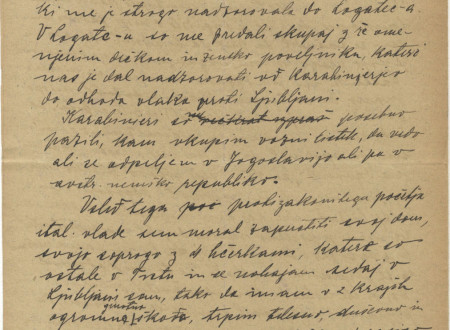 ki me je strogo nadzorovala do Logatec-a.
V Logatc-u so me predali skupaj z že ome-
njenim dečkom in žensko poveljniku, kateri
nas je dal nadzorovati od Karabinjerjev
do odhoda vlaka proti Ljubljani.
Karabinjeri so me posebno
pazili, kam vkupim vozni listek, da vedo
ali se odpeljem v Jugoslavijo ali pa v
avstr. nemško republiko.
Vsled tega proti zakonitega početja
ital. vlade sem moral zapustiti svoj dom,
svojo soprogo z 4 hčerkami, katere so
ostale v Trstu in se nahajam sedaj v
Ljubljani sam, tako da imam v 2 krajih
ogromne škode, trpim telesno, duševno in